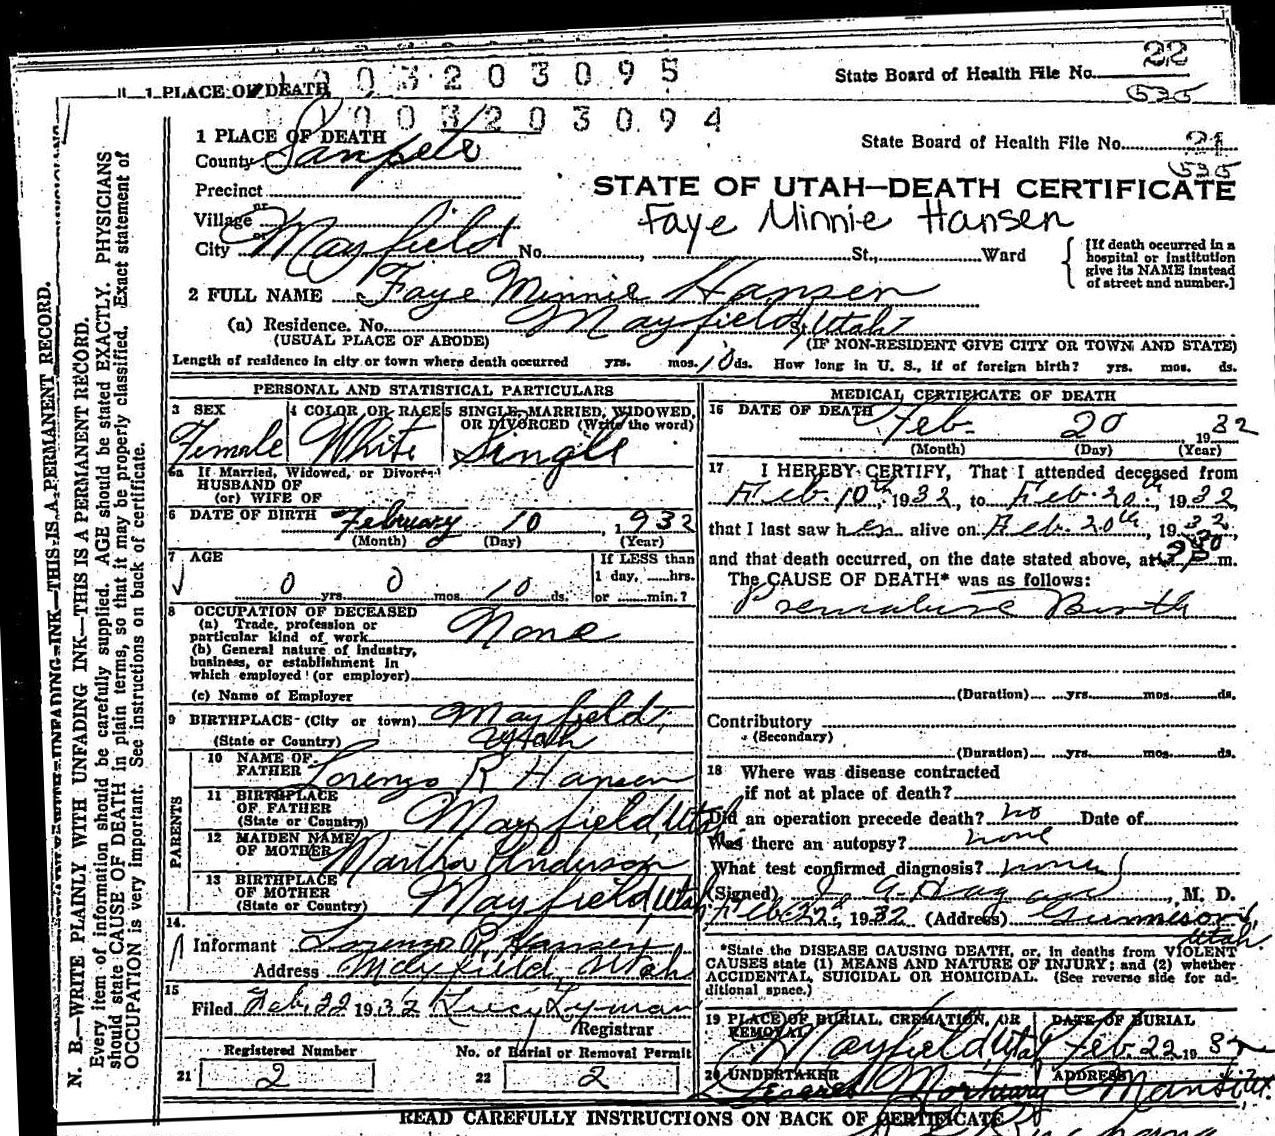 003203095
State Board of Health File No. 22
1 PLACE OF DEATH
535
003203094
1 PLACE OF DEATH
State Board of Health File No. 21
County Sanpete
535
STATE OF UTAH—DEATH CERTIFICATE
Precinct
Faye Minnie Hansen
Village or
City or Mayfield No. , St., Ward
[If death occurred in a hospital or institution give its NAME instead of street and number.]
2 FULL NAME Faye Minnie Hansen
(a) Residence. No. Mayfield, Utah
(USUAL PLACE OF ABODE) (IF NON-RESIDENT GIVE CITY OR TOWN AND STATE)
Length of residence in city or town where death occurred yrs. mos. 10 ds. How long in U. S., if of foreign birth? yrs. mos. ds.
PERSONAL AND STATISTICAL PARTICULARS
3 SEX Female
4 COLOR OR RACE White
5 SINGLE, MARRIED, WIDOWED, OR DIVORCED (Write the word) Single
6a If Married, Widowed, or Divorced
HUSBAND OF
(or) WIFE OF
6 DATE OF BIRTH February 10, 1932
(Month) (Day) (Year)
7 AGE
0 yrs. 0 mos. 10 ds.
If LESS than
1 day, ......hrs.
or ......min.?
8 OCCUPATION OF DECEASED
(a) Trade, profession or
particular kind of work None
(b) General nature of industry,
business, or establishment in
which employed (or employer)
(c) Name of Employer
9 BIRTHPLACE (City or town) Mayfield,
(State or Country) Utah
PARENTS
10 NAME OF FATHER Lorenzo R Hansen
11 BIRTHPLACE OF FATHER (State or Country) Mayfield, Utah
12 MAIDEN NAME OF MOTHER Martha Anderson
13 BIRTHPLACE OF MOTHER (State or Country) Mayfield, Utah
14.
Informant Lorenzo R. Hansen
Address Mayfield Utah
15
Filed Feb. 22 1932 Lucy Lyman
Registrar
Registered Number
21 2
No. of Burial or Removal Permit
22 2
MEDICAL CERTIFICATE OF DEATH
16 DATE OF DEATH Feb. 20 1932
(Month) (Day) (Year)
17 I HEREBY CERTIFY, That I attended deceased from
Feb. 10th, 1932, to Feb. 20th, 1932,
that I last saw her alive on Feb. 20th, 1932,
and that death occurred, on the date stated above, at m.
The CAUSE OF DEATH* was as follows:
Premature Birth
(Duration) yrs. mos. ds.
Contributory
(Secondary)
(Duration) yrs. mos. ds.
18 Where was disease contracted
if not at place of death?
Did an operation precede death? no Date of
Was there an autopsy? none
What test confirmed diagnosis? none
(Signed) , M. D.
Feb 22d, 1932 (Address) Gunnison, Utah
*State the DISEASE CAUSING DEATH, or, in deaths from VIOLENT
CAUSES state (1) MEANS AND NATURE OF INJURY; and (2) whether
ACCIDENTAL, SUICIDAL OR HOMICIDAL. (See reverse side for ad-
ditional space.)
19 PLACE OF BURIAL, CREMATION, OR REMOVAL Mayfield, Utah
DATE OF BURIAL Feb. 22 1932
20 UNDERTAKER Mortuary
ADDRESS Manti Ut.
READ CAREFULLY INSTRUCTIONS ON BACK OF CERTIFICATE
N. B.—WRITE PLAINLY WITH UNFADING INK—THIS IS A PERMANENT RECORD.
Every item of information should be carefully supplied. AGE should be stated EXACTLY. PHYSICIANS
should state CAUSE OF DEATH in plain terms, so that it may be properly classified. Exact statement of
OCCUPATION is very important. See instructions on back of certificate.